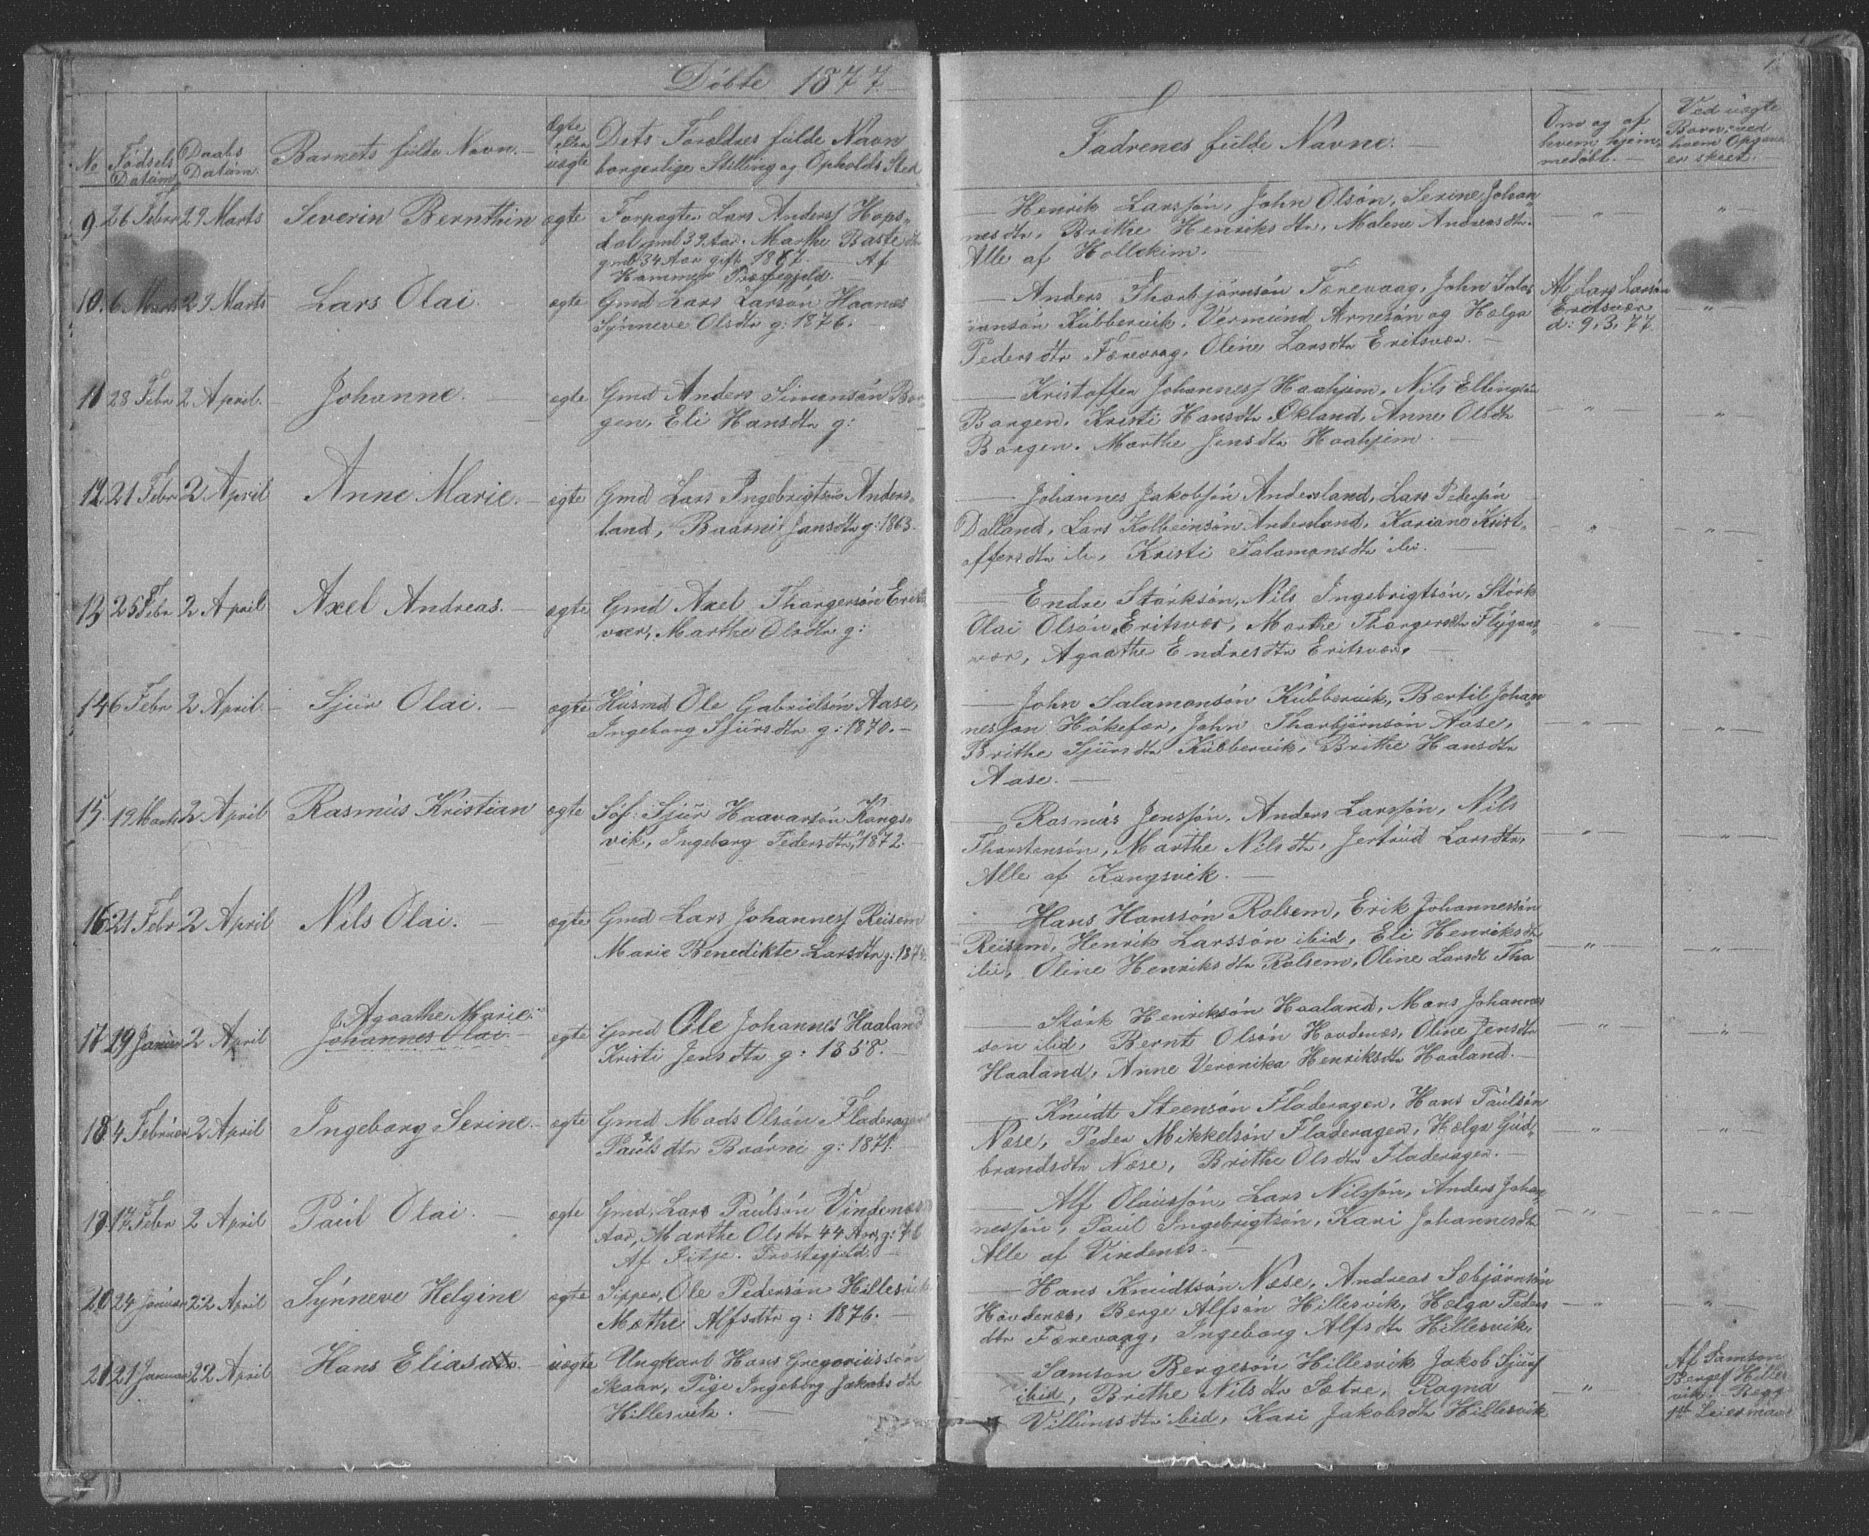 Döbte 1877
No
Födsels Datum
Daabs Datum
Barnets fulde Navn.
Ægte eller uægte
Dets Forældres fulde Navn
borgerlige Stilling og Opholds Sted
Fadrenes fulde Navne.
Om og af
hvem hjem-
medöbt.
Ved uægte
Börn, ved
hvem Opgave
er skeet.
9 26 Febr 29 Marts Severin Bernthin ægte
Forpagter Lars Anderss Hops-
dal gml 39 Aar. Marthe Baste dtr
gml 34 Aar gift 1867. — Af
Hammer Præstegjeld.
— Henrik Larssön, John Olsön, Serine Johan
nesdtr, Brithe Henriksdtr, Malene Andreasdtr.
Alle af Hollekim.
10. 6 Marts 29 Marts Lars Olai. ægte
Gmd Lars Larsön Haanes
Synneve Olsdtr g: 1876.
— Anders Thorbjörnsön Færevaag, John Salo-
monsön Kubbervik, Vermund Arnesön og Hælga
Pedersdtr Færevaag, Oline Larsdtr Eritsvær.
Af Lars Larsön
Eritsvær
d: 9, 3, 77
11 28 Febr 2 April. Johanne. ægte
Gmd Anders Simonsön Bor
gen, Eli Hansdtr g:
— Kristoffer Johanness Haahjem, Nils Ellingsön
Borgen, Kristi Hansdtr Økland, Anne Olsdtr
Borgen. Marthe Jensdtr Haahjem.
12. 21 Febr 2 April Anne Marie. ægte
Gmd Lars Ingebrigtsön Anders-
land, Baarni Jansdtr g: 1863.
— Johannes Jakobsön Andersland, Lars Pedersön
Dalland, Lars Kolbeinsön Andersland, Kariane Krist-
offersdtr ib, Kristi Salamonsdtr ib.
13 25 Febr 2 April Axel Andreas. ægte
Gmd Axel Thorgersön Erits
vær, Marthe Olsdtr g:
— Endre Störksön, Nils Ingebrigtsön, Störk
Olai Olsön Eritsvær, Marthe Thorgersdtr Flygans-
vær, Agaathe Endresdtr Eritsvær.
14 6 Febr 2 April. Sjur Olai. ægte
Husmd Ole Gabrielsön Aase,
Ingeborg Sjursdtr g: 1870.
— John Salamonsön Kubbervik, Bærtil Johan-
nesson Hökefær, John Thorbjörnsön Aase,
Brithe Sjursdtr Kubbervik, Brithe Hansdtr
Aase.
15. 19 Marts 2 April Rasmus Kristian ægte
Sjur Haavarsön Kongs-
vik, Ingeborg Pedersdtr, 1872.
— Rasmus Jenssön, Anders Larssön, Nils
Thorstensön, Marthe Nilsdtr, Jertrud Larsdtr,
Alle af Kongsvik.
16 21 Febr 2 April Nils Olai. ægte
Gmd Lars Johanness Reisem
Marie Benedikte Larsdtr g:
— Hans Hanssön Rolsem, Erik Johannessön
Reisem, Henrik Larssön ibid, Eli Henriksdtr
ib, Oline Henriksdtr Rolsem, Oline Larsdt
17 29 Januar 2 April Agaathe Marie.
Johannes Olai. ægte
Gmd Ole Johannes Haaland
Kristi Jensdtr g: 1858.
— Störk Henriksön Haaland, Mons Johannes
son ibid, Bernt Olsön Hovdenæs, Oline Jensdtr
Haaland, Anne Veronika Henriksdtr Haaland.
18. 4 Februar 2 April Ingeborg Serine. ægte
Gmd Mads Olsön Fladerager
Paulsdtr Baarni g: 1871.
— Knudt Steensön Fladerager, Hans Paulsön
Næse, Peder Mikkelsön Fladerager, Hælga Gud-
brandsdtr Næse, Brithe Olsdtr Fladerager.
19. 17 Febr 2 April Paul Olai. ægte
Gmd, Lars Paulsön Vindenæs
Aar, Marthe Olsdtr 44 Aar, g: 76
Af Fitje Præstegjeld.
— Alf Olaussön, Lars Nilssön, Anders Johan
nessön, Paul Ingebrigtsön, Kari Johannesdtr
Alle af Vindenes.
20 24 Januar 22 April Synneve Helgine ægte
Ole Pedersön Hillesvik
Mæthe Alfsdtr g: 1876.
— Hans Knudtsön Næse, Andreas Sæbjörnsön
Hovdenæs, Berge Alfsön Hillesvik, Hælga Peders
dtr Færevaag, Ingeborg Alfsdtr Hillesvik.
21 21 Januar 22 April Hans Elias uægte
Ungkarl Hans Gregoriussön
Skaar, Pige Ingeborg Jakobsdtr
Hillesvik.
— Samson Bergesön Hillesvik Jakob Sjurs
ibid, Brithe Nilsdtr Sætre, Ragna
Villumsdtr ibid, Kari Jakobsdtr Hillesvik
Af Samson
Bergess Hilles
vik. Begg
1st Leiermaal